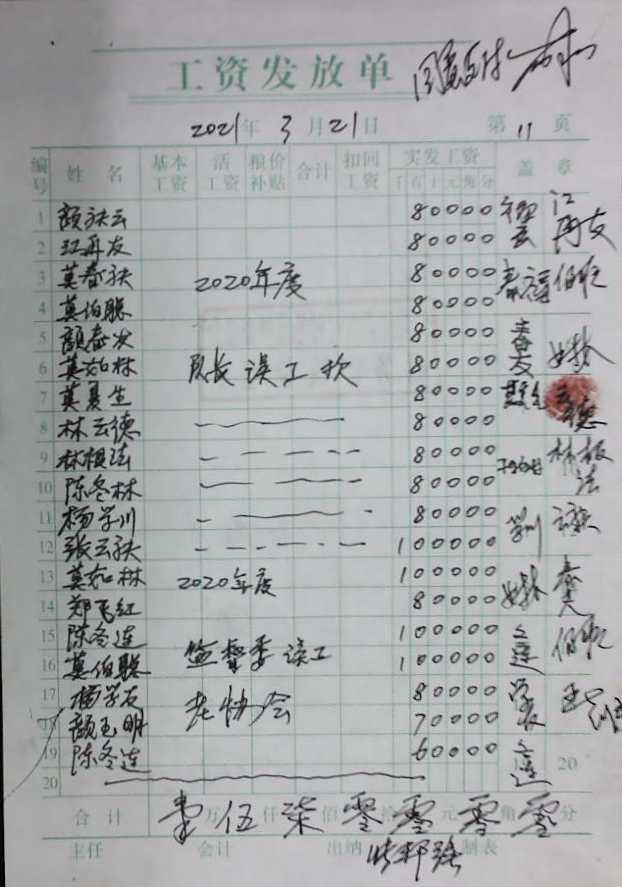 工资发放单
2021年3月21日 第11页
编号 姓名 基本工资 活工资 粮价补贴 合计 扣回工资 实发工资 盖章
千百十元角分
1 颜秋云 80000
2 江再友 80000 江再友
3 莫春秋 2020年度 80000
4 莫伯聪 80000
5 颜春次 80000
6 莫茹林 队长误工 80000
7 莫夏生 80000
8 林云德 80000 云德
9 林根法 80000 林根法
10 陈冬林 80000
11 杨学川 80000 学川
12 张云秋 100000
13 莫茹林 2020年度 100000
14 郑飞红 80000
15 陈冬连 100000
16 莫伯聪 监督委误工 100000
17 杨学石 老协会 80000
18 颜玉明 70000
19 陈冬连 60000
20 20
合计 壹万伍仟柒佰零拾零元零角零分
主任 会计 出纳 制表